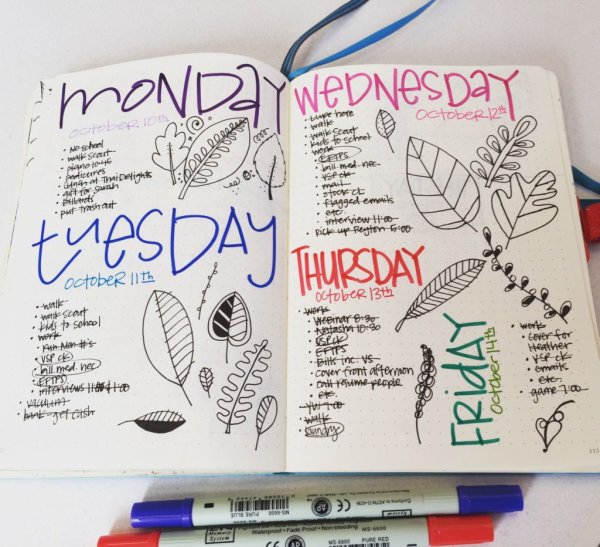 monday
october 10th
No school
walk scout
piano
pedicures
lunch at Thai Delights
gift for sarah
billiards
put trash out
tuesday
october 11th
walk
walk scout
kids to school
work
VSP ck
bill med. nec
EFTPS
interviews
vacuum
bank - get cash
wednesday
october 12th
Lupe here
walk
walk scout
kids to school
work
EFTPS
bill med. nec
VSP ck
mail
stock ck
flagged emails
etc.
interview 11:00
pick up Peyton 5:00
THURSDAY
october 13th
work
Webinar 8:30
Natasha 10:30
VSP ck
EFTPS
Bills inc. vs.
cover front afternoon
call resume people
etc
YW 7:00
walk
laundry
Friday
october 14th
work
cover for
Heather
VSP ck
emails
etc.
game 7:00
113
MS-6600
PURE BLUE
AP
Conforms to ASTM D-4236
Memory System
Waterproof • Fade Proof • Non-bleeding
MS-6600
PURE RED
AP
System